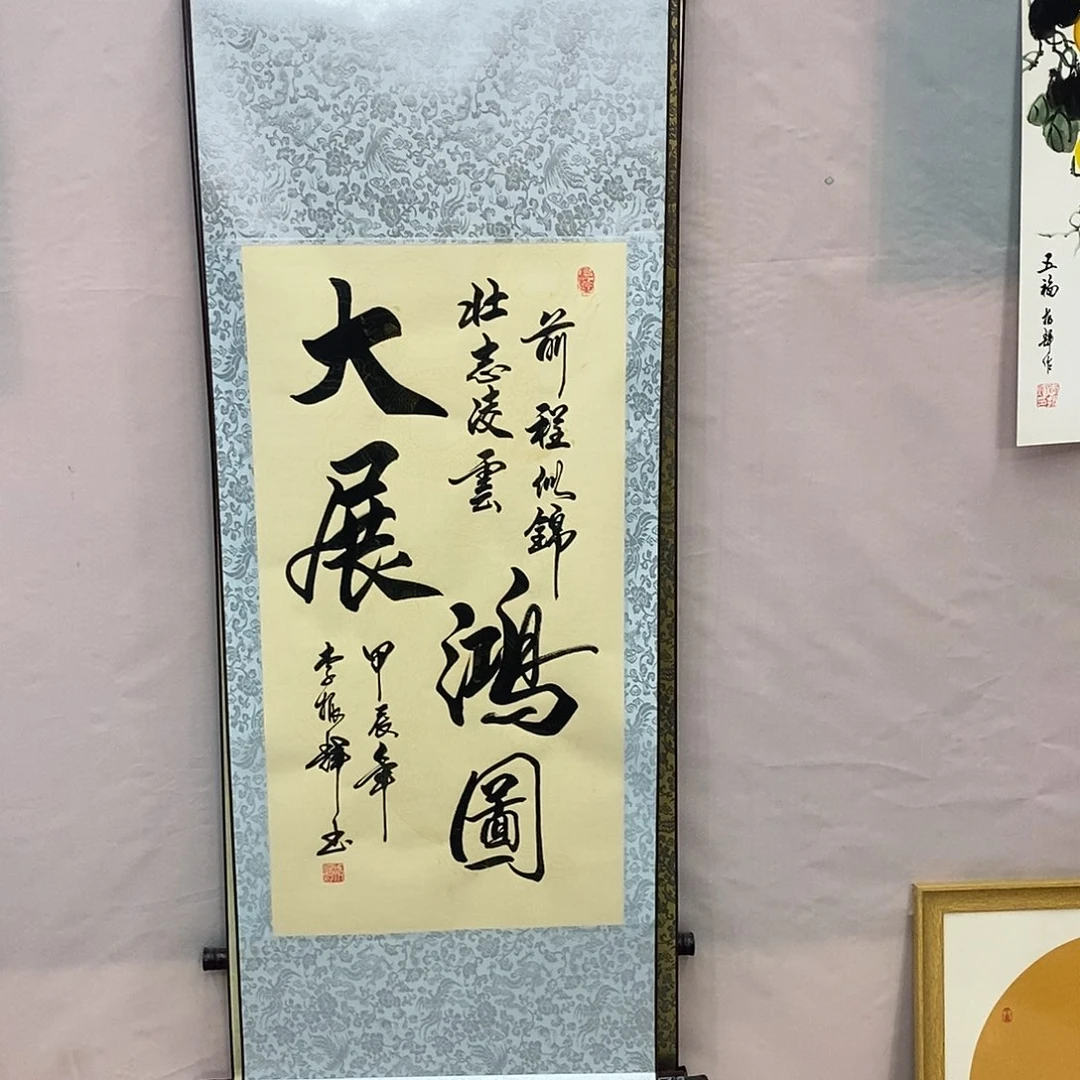 前程似錦
壯志凌雲
大展
鴻圖
甲辰年
李振輝书
五福